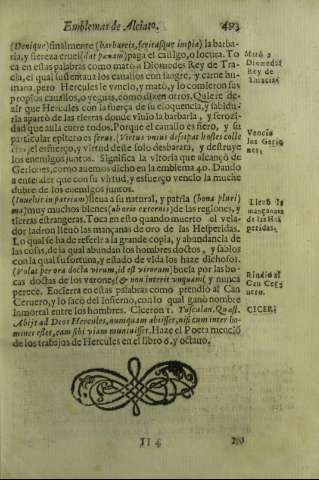 Emblemas de Alciato. 493
(Denique) finalmente (barbareis, feritasque impia) la barba-
ria, y fiereza cruel (dat pœnam) paga el castigo, o locura. To
ca en estas palabras como mato a Diomedes Rey de Tra-
cia, el qual sustentaua los cauallos con sangre, y carne hu-
mana, pero Hercules le vencio, y mato, y lo comieron sus
propios cauallos, o yeguas, como dizen otros. Quiere de-
zir que Hercules con la fuerça de su eloquencia, y sabidu-
ria aparto de las tierras donde viuio la barbaria, y ferozi-
dad que auia entre todos. Porque el cauallo es fiero, y su
particular epiteto es feras. Virtus vnius dissipat hostes colle
ctos, el esfuerço, y virtud deste solo desbarata, y destruye
los enemigos juntos. Significa la vitoria que alcançò de
Geriones, como auemos dicho en la emblema 40. Dando
a entender que con su virtud, y esfuerço vencio la muche
dubre de los enemigos juntos.
(Inuehit in patriam) lleua a su natural, y patria (bona pluri
ma) muy muchos bienes (ab oris externis) de las regiones, y
tierras estrangeras. Toca en esto quando muerto el vela-
dor ladron lleuò las mançanas de oro de las Hesperidas.
Lo qual se ha de referir a la grande copia, y abundancia de
las cosas, de la qual abundan los hombres doctos, y sabios
con la qual su fortuna, y estado de vida los haze dichosos.
(Volat per ora docta virum, id est virorum) buela por las bo-
cas doctas de los varones (& non interit vnquam) y nunca
perece. Encierra en estas palabras como prendio al Can
Ceruero, y lo saco del Infierno, con lo qual ganò nombre
inmortal entre los hombres. Ciceron 1. Tusculan. Quæst.
Abijt ad Deos Hercules, nunquam abijsset, nisi cum inter ho-
mines esset, eam sibi viam muniuisset. Haze el Poeta menciõ
de los trabajos de Hercules en el libro 6. y octauo.
Matò a
Diomedes
Rey de
Tracia.
Vencio
los Gerio
nes.
Lleuò las
mançanas
de las Hes
peridas.
Rindio al
Can Cer
uero.
CICER.
II 4